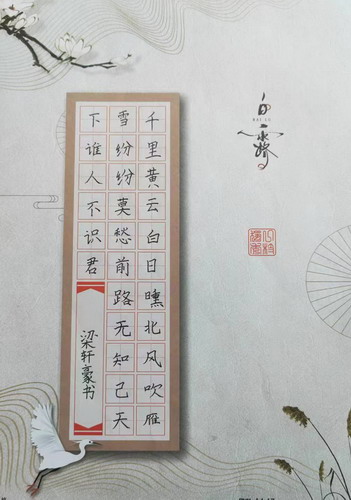 千里黄云白日曛北风吹雁
雪纷纷莫愁前路无知己天
下谁人不识君
梁轩豪书
白露
BAI LU